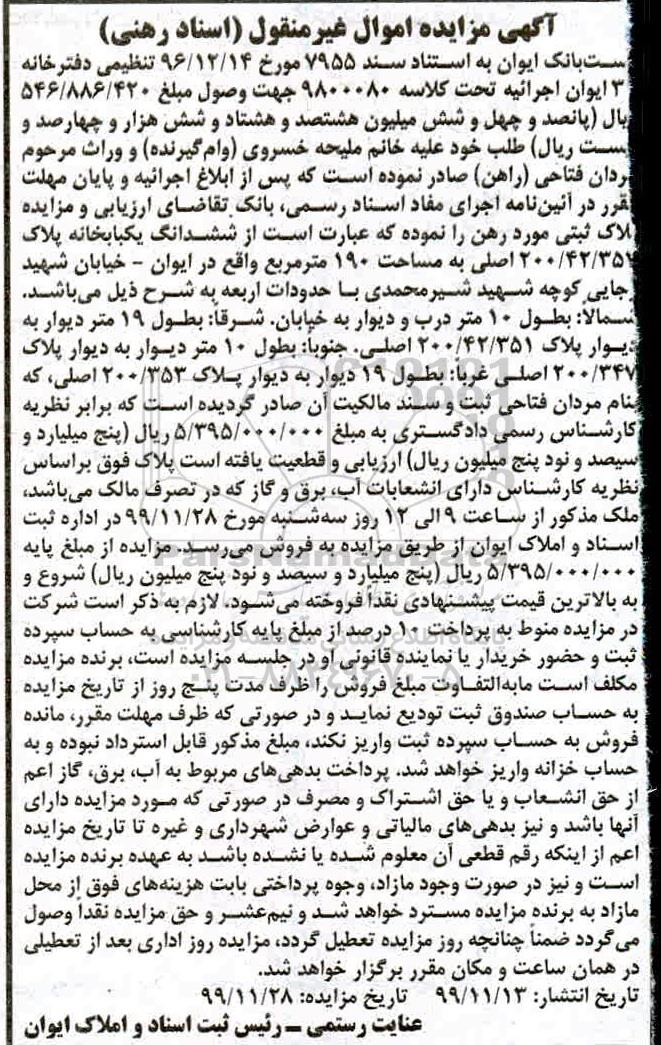 آگهی مزایده اموال غیرمنقول (اسناد رهنی)
ست‌بانک ایوان به استناد سند ۷۹۵۵ مورخ ۹۶/۱۲/۱۴ تنظیمی دفترخانه
۳ ایوان اجرائیه تحت کلاسه ۹۸۰۰۰۸۰ جهت وصول مبلغ ۵۴۶/۸۸۶/۴۲۰
یال (پانصد و چهل و شش میلیون هشتصد و هشتاد و شش هزار و چهارصد و
یست ریال) طلب خود علیه خانم ملیحه خسروی (وام‌گیرنده) و وراث مرحوم
ردان فتاحی (راهن) صادر نموده است که پس از ابلاغ اجرائیه و پایان مهلت
قرر در آئین‌نامه اجرای مفاد اسناد رسمی، بانک تقاضای ارزیابی و مزایده
پلاک ثبتی مورد رهن را نموده که عبارت است از ششدانگ یکبابخانه پلاک
۲۰۰/۴۲/۳۵۲ اصلی به مساحت ۱۹۰ مترمربع واقع در ایوان - خیابان شهید
رجایی کوچه شهید شیرمحمدی با حدودات اربعه به شرح ذیل می‌باشد.
شمالاً: بطول ۱۰ متر درب و دیوار به خیابان. شرقاً: بطول ۱۹ متر دیوار به
دیوار پلاک ۲۰۰/۴۲/۳۵۱ اصلی. جنوباً: بطول ۱۰ متر دیوار به دیوار پلاک
۲۰۰/۳۴۷ اصلی غرباً: بطول ۱۹ دیوار به دیوار پلاک ۲۰۰/۳۵۳ اصلی، که
بنام مردان فتاحی ثبت و سند مالکیت آن صادر گردیده است که برابر نظریه
کارشناس رسمی دادگستری به مبلغ ۵/۳۹۵/۰۰۰/۰۰۰ ریال (پنج میلیارد و
سیصد و نود پنج میلیون ریال) ارزیابی و قطعیت یافته است پلاک فوق براساس
نظریه کارشناس دارای انشعابات آب، برق و گاز که در تصرف مالک می‌باشد،
ملک مذکور از ساعت ۹ الی ۱۲ روز سه‌شنبه مورخ ۹۹/۱۱/۲۸ در اداره ثبت
اسناد و املاک ایوان از طریق مزایده به فروش می‌رسد. مزایده از مبلغ پایه
۵/۳۹۵/۰۰۰/۰۰۰ ریال (پنج میلیارد و سیصد و نود پنج میلیون ریال) شروع و
به بالاترین قیمت پیشنهادی نقداً فروخته می‌شود. لازم به ذکر است شرکت
در مزایده منوط به پرداخت ۱۰ درصد از مبلغ پایه کارشناسی به حساب سپرده
ثبت و حضور خریدار یا نماینده قانونی او در جلسه مزایده است، برنده مزایده
مکلف است مابه‌التفاوت مبلغ فروش را ظرف مدت پنج روز از تاریخ مزایده
به حساب صندوق ثبت تودیع نماید و در صورتی که ظرف مهلت مقرر، مانده
فروش به حساب سپرده ثبت واریز نکند، مبلغ مذکور قابل استرداد نبوده و به
حساب خزانه واریز خواهد شد. پرداخت بدهی‌های مربوط به آب، برق، گاز اعم
از حق انشعاب و یا حق اشتراک و مصرف در صورتی که مورد مزایده دارای
آنها باشد و نیز بدهی‌های مالیاتی و عوارض شهرداری و غیره تا تاریخ مزایده
اعم از اینکه رقم قطعی آن معلوم شده یا نشده باشد به عهده برنده مزایده
است و نیز در صورت وجود مازاد، وجوه پرداختی بابت هزینه‌های فوق از محل
مازاد به برنده مزایده مسترد خواهد شد و نیم‌عشر و حق مزایده نقداً وصول
می‌گردد ضمناً چنانچه روز مزایده تعطیل گردد، مزایده روز اداری بعد از تعطیلی
در همان ساعت و مکان مقرر برگزار خواهد شد.
تاریخ انتشار: ۹۹/۱۱/۱۳ تاریخ مزایده: ۹۹/۱۱/۲۸
عنایت رستمی - رئیس ثبت اسناد و املاک ایوان